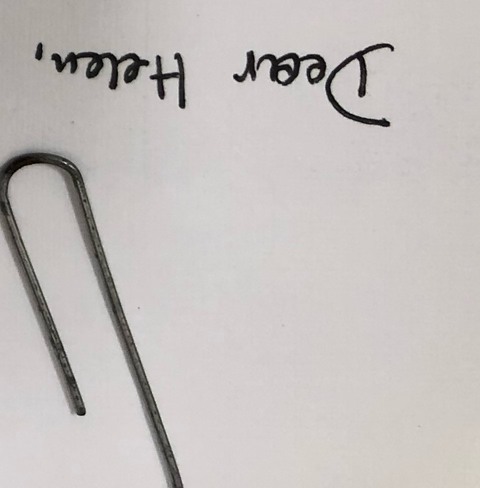 Dear Helen,